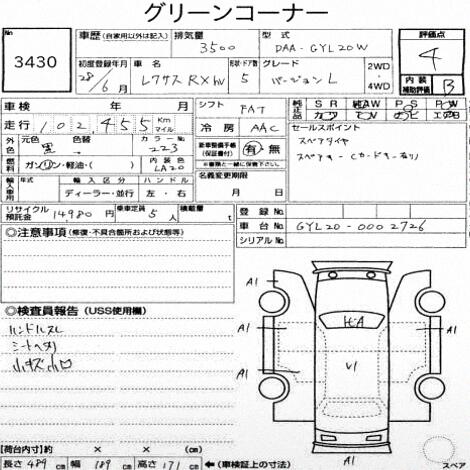 グリーンコーナー
No. 3430
車歴 (自家用以外は記入) 排気量 3500 型式 DAA-GYL20W 評価点 4
初度登録年月 28/6月 車名 レクサスRXHV 形状・ドア数 5 グレード バージョンL 2WD・4WD 内装補助評価 B
車検 年 月 シフト FAT 純正装備品 SR AW PS PW
走行 102,455 Km マイル 冷房 AAC カワ TV ナビ エアB
外色 元色 黒 カラーNo. 223 新車整備手帳(保証書付) 有・無 セールスポイント
燃料 ガソリン・軽油・( ) 内装色 LA20 スペアタイヤ
輸入車用 年式 輸入区分 ハンドル 名義変更期限
ディーラー・並行 左・右 月 日
リサイクル預託金 14980円 乗車定員 5人 積載量 t 登録No.
車台No. GYL20-0002726
シリアルNo.
◎注意事項(修復・不具合箇所および状態等)
◎検査員報告(USS使用欄)
ハンドルスレ
シートヘタリ
小キズ小凹
A1 A1
A1 A1
A1
【荷台内寸】 長さ × 幅 × 高さ
長さ 489cm 幅 189cm 高さ 171cm ←(車検証上の寸法)
スペア